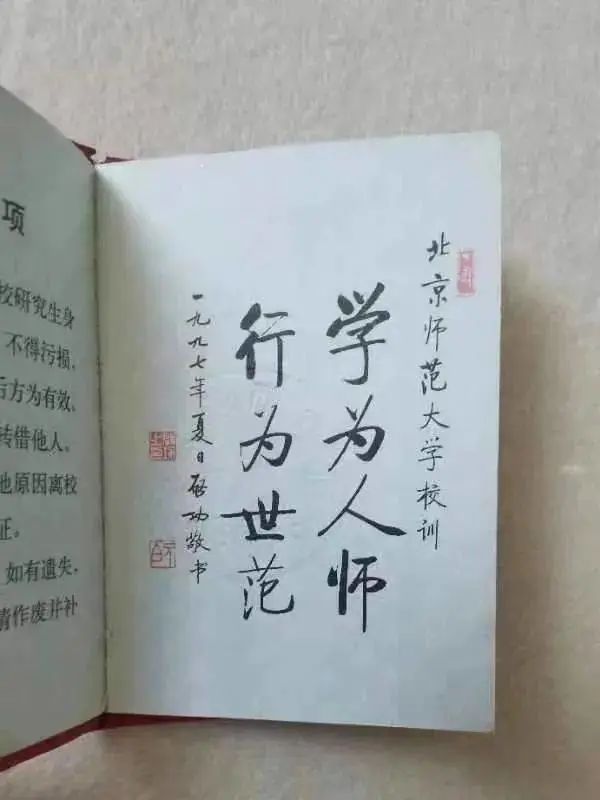 项
校研究生身
不得污损,
后方为有效,
转借他人。
他原因离校
证。
如有遗失,
请作废并补
北京师范大学校训
学为人师
行为世范
一九九七年夏日启功敬书